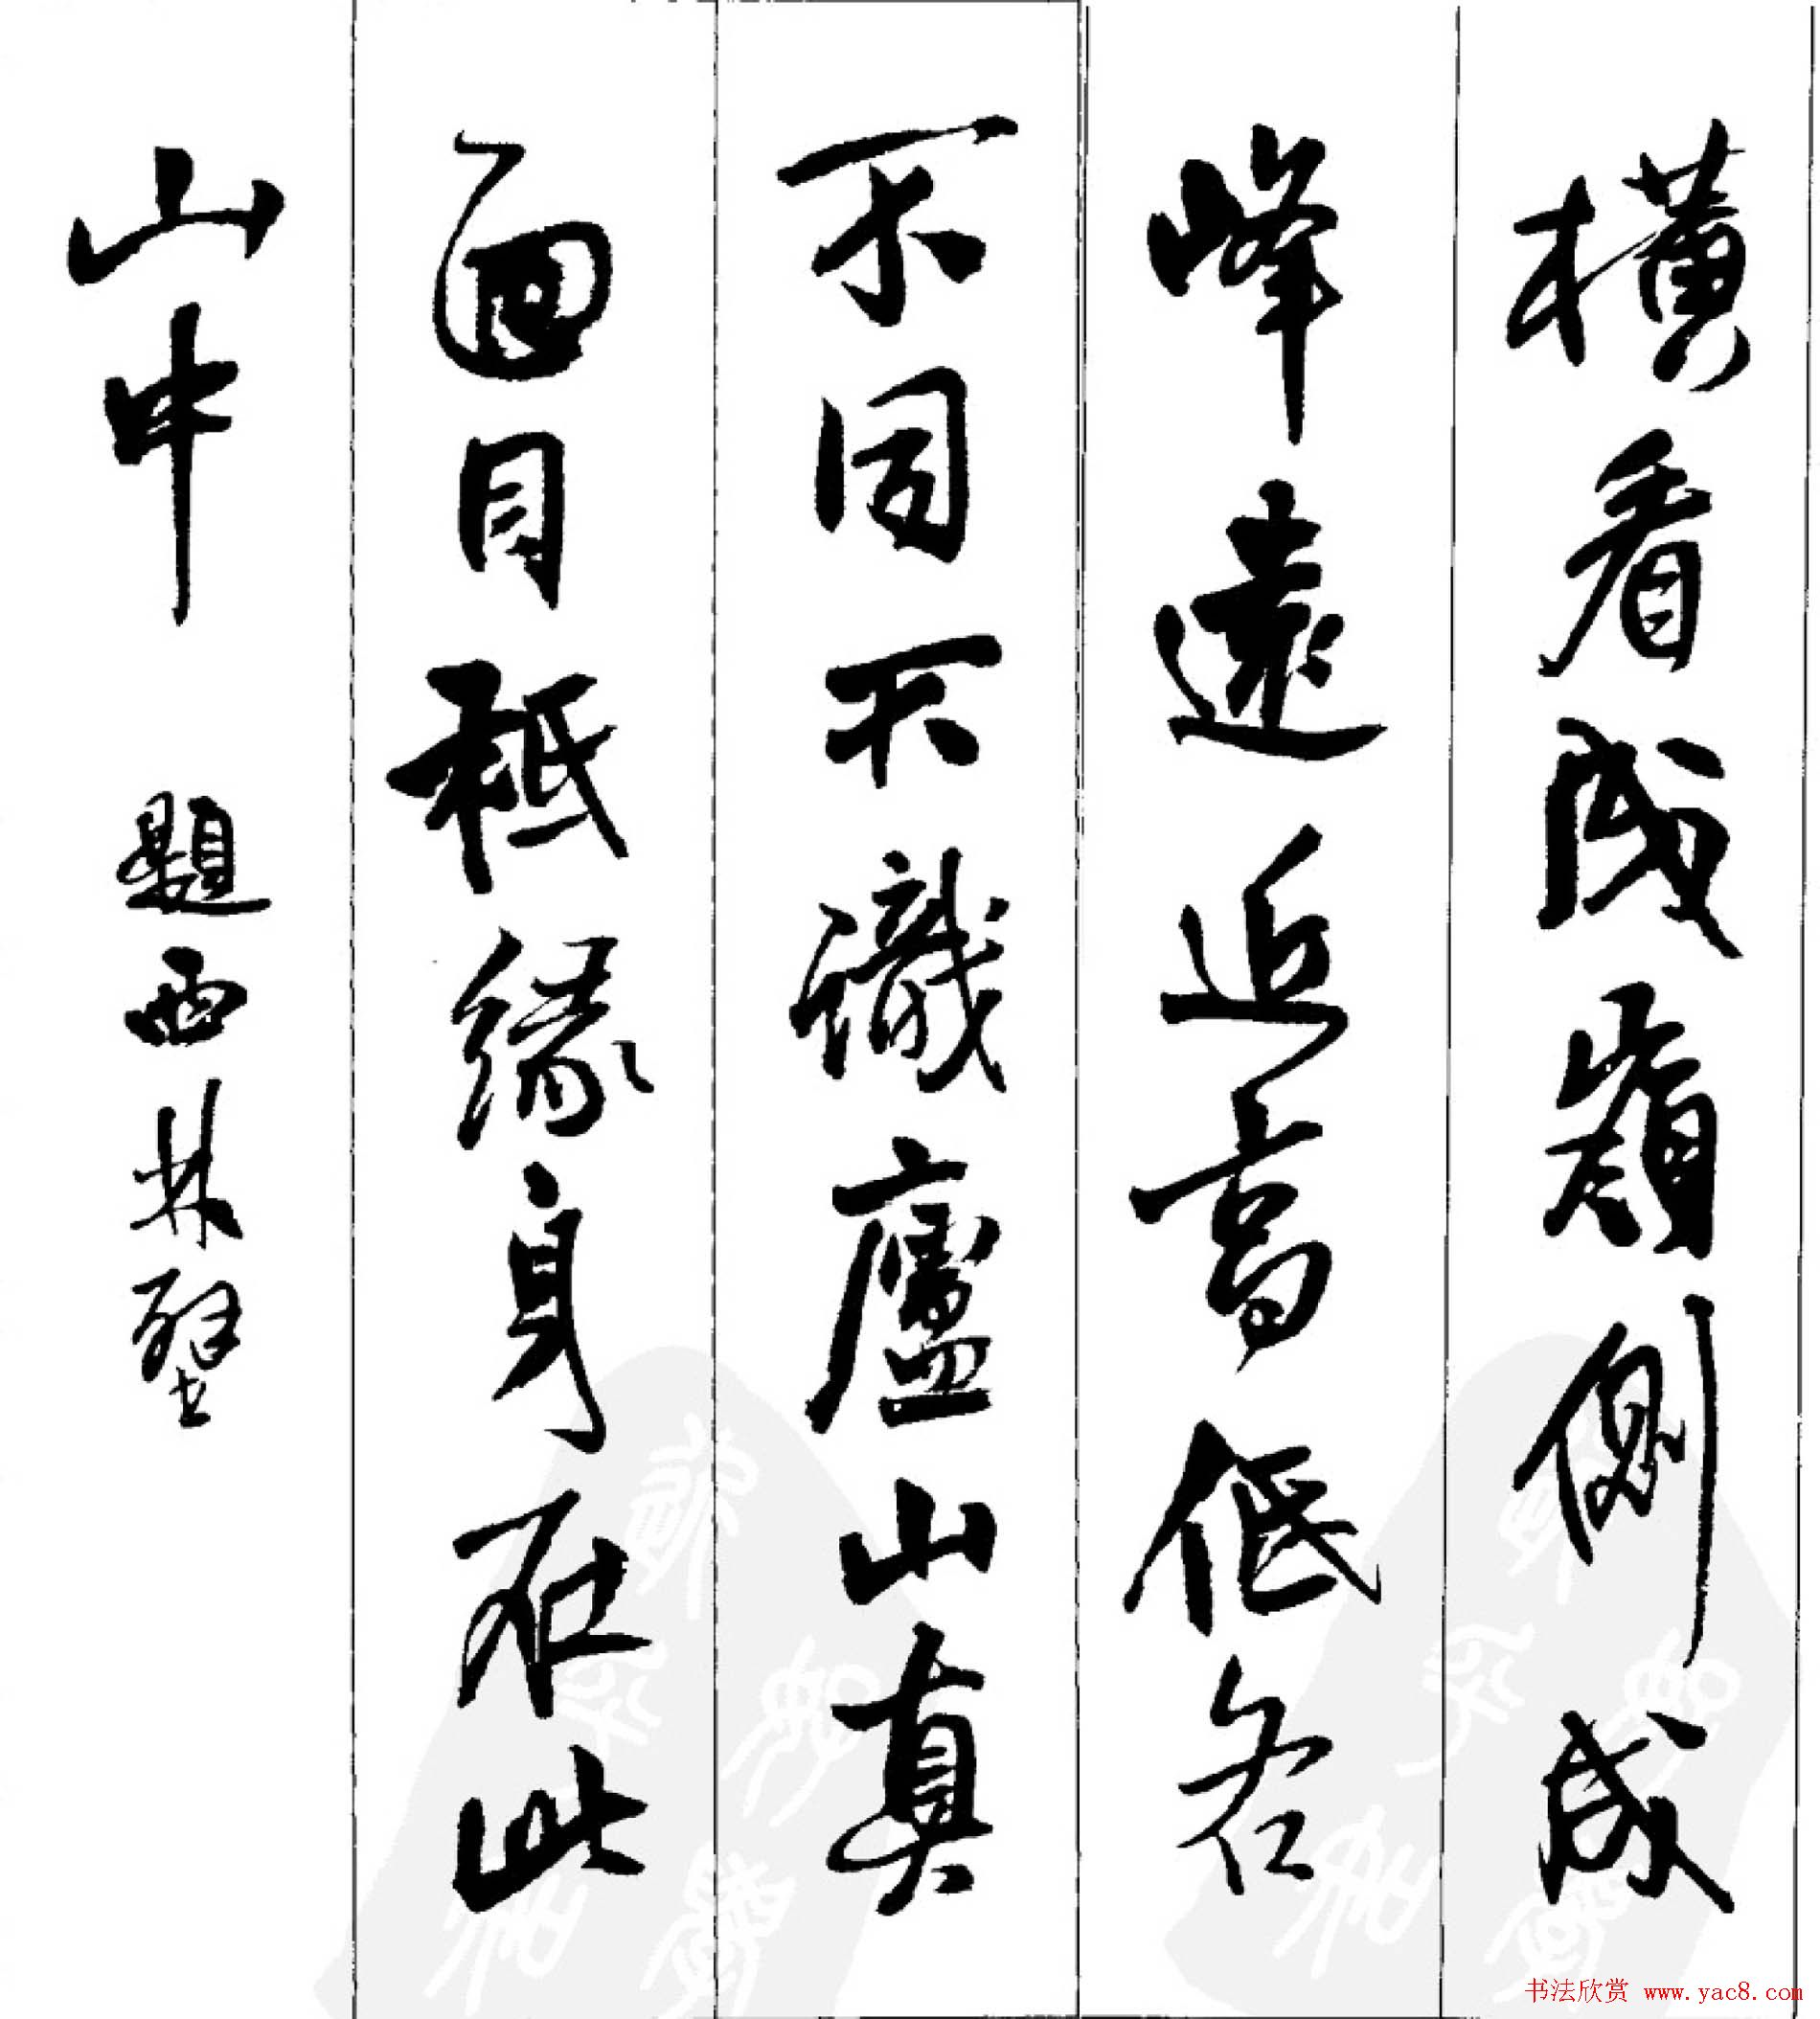 橫看成嶺側成
峰遠近高低各
不同不識廬山真
面目秖緣身在此
山中 題西林壁
书法欣赏 www.yac8.com